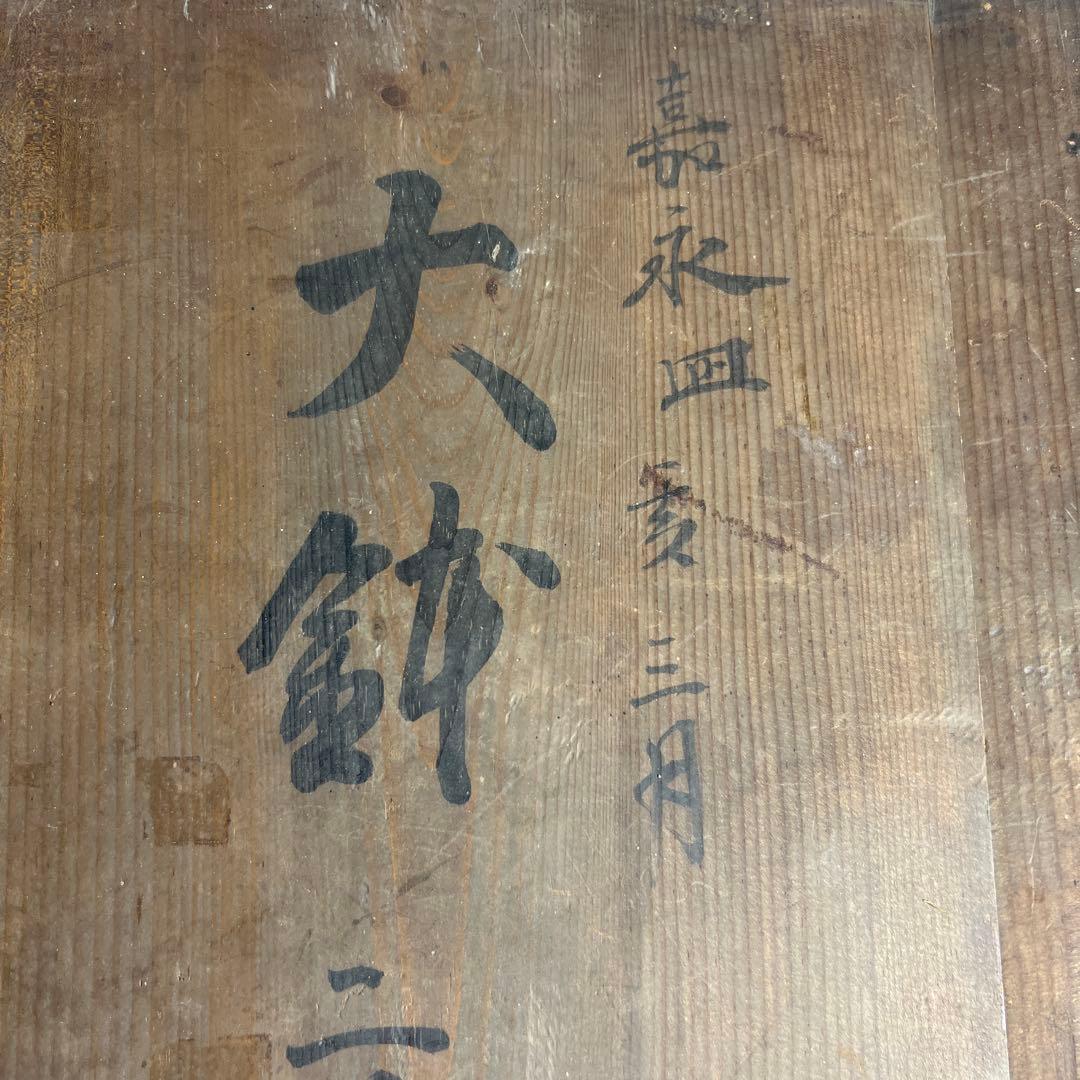 嘉永四亥三月
大鉢二